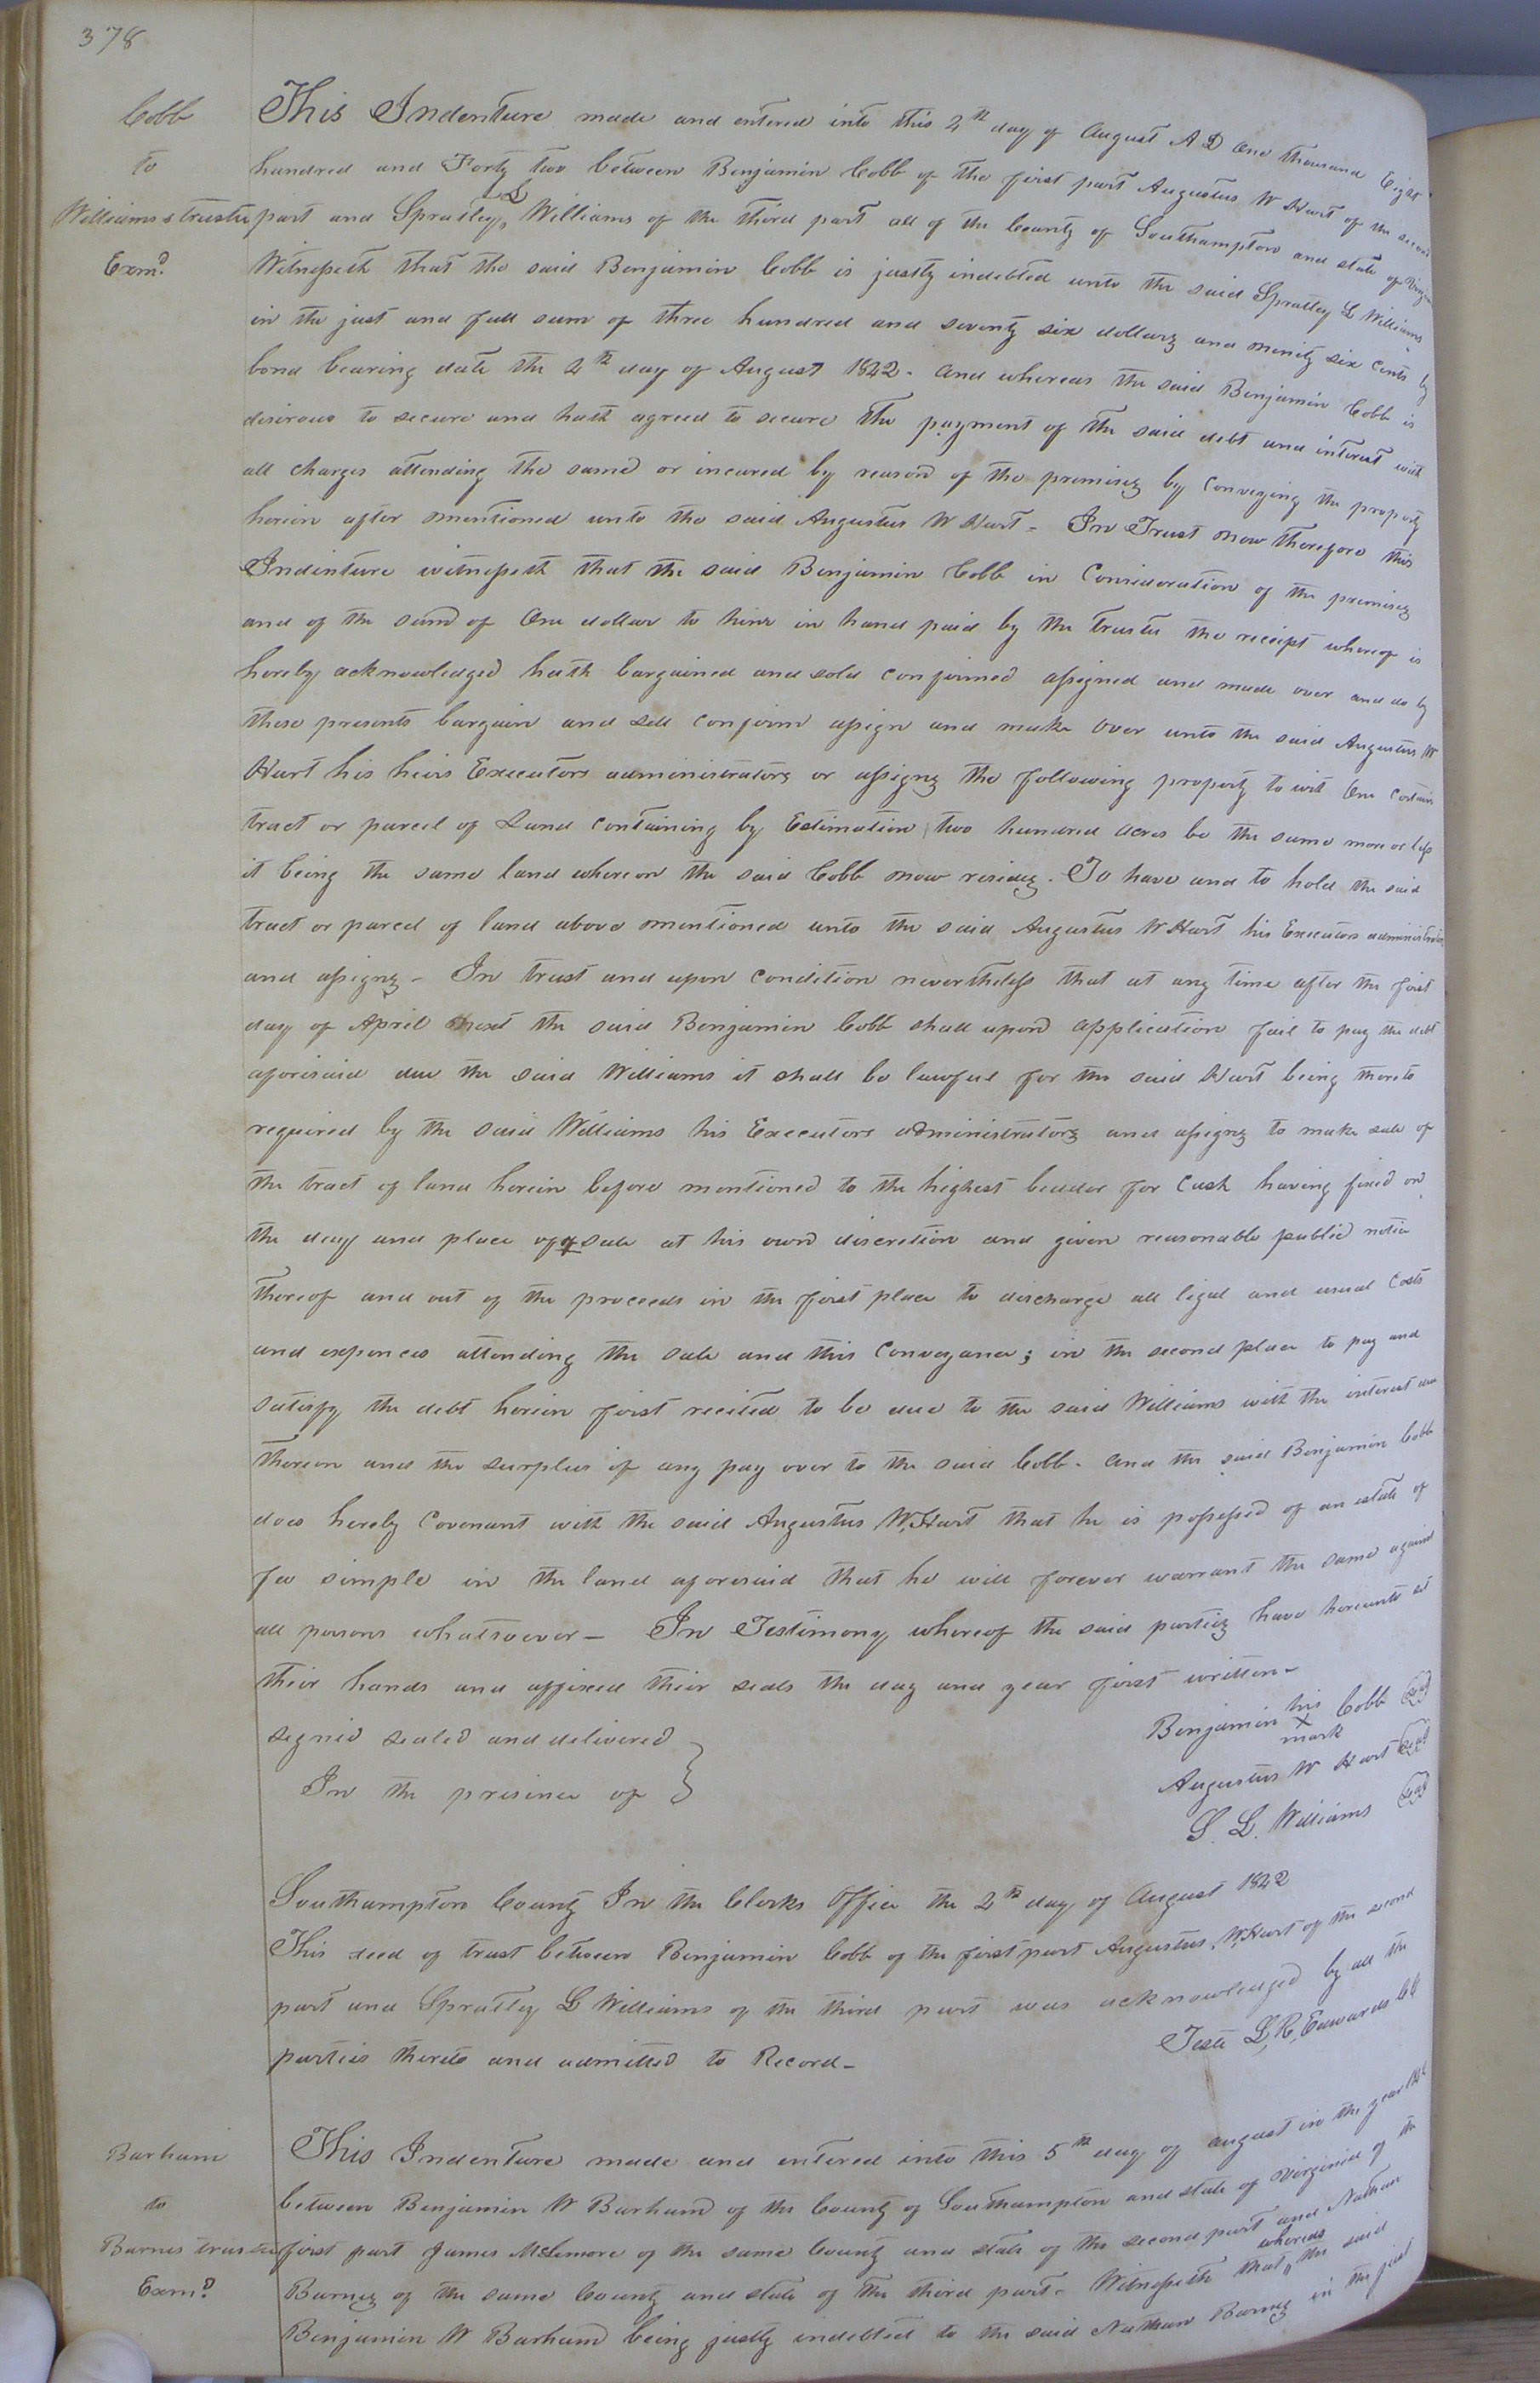 378
Cobb
to
Williams & trustee
Exmd.
This Indenture made and entered into this 2th day of August A D One thousand Eight
hundred and Forty two between Benjamin Cobb of the first part Augustus W Hart of the second
part and Spratley L Williams of the third part all of the County of Southampton and state of Virginia
Witnesseth that the said Benjamin Cobb is justly indebted unto the said Spratley L Williams
in the just and full sum of three hundred and seventy six dollars and ninety six cents by
bond bearing date the 2th day of August 1842 - and whereas the said Benjamin Cobb is
desirous to secure and hath agreed to secure the payment of the said debt and interest with
all charges attending the same or incured by reason of the premises by Conveying the property
herein after mentioned unto the said Augustus W Hart - In Trust now therefore this
Indenture witnesseth that the said Benjamin Cobb in Consideration of the premises
and of the sum of One dollar to him in hand paid by the trustee the receipt whereof is
hereby acknowledged hath bargained and sold confirmed assigned and made over and do by
these presents bargain and sell confirm assign and make over unto the said Augustus W
Hart his heirs Executors administrators or assigns the following property to wit One Certain
tract or parcel of Land Containing by Estimation two hundred acres be the same more or less
it being the same land whereon the said Cobb now resides. To have and to hold the said
tract or parcel of land above mentioned unto the said Augustus W Hart his Executors administrators
and assigns - In trust and upon Condition nevertheless that at any time after the first
day of April next the said Benjamin Cobb shall upon application fail to pay the debt
aforesaid due the said Williams it shall be lawful for the said Hart being thereto
required by the said Williams his Executors administrators and assigns to make sale of
the tract of land herein before mentioned to the highest bidder for Cash having fixed on
the day and place of of sale at his own discretion and given reasonable public notice
thereof and out of the proceeds in the first place to discharge all legal and usual Costs
and expences attending the sale and this Conveyance; in the second place to pay and
satisfy the debt herein first recited to be due to the said Williams with the interest due
thereon and the surplus if any pay over to the said Cobb - and the said Benjamin Cobb
does hereby Covenant with the said Augustus W. Hart that he is possessed of an estate of
fee simple in the land aforesaid that he will forever warrant the same against
all persons whatsoever - In Testimony whereof the said parties have hereunto set
their hands and affixed their seals the day and year first written -
signed sealed and delivered
In the presence of
his
Benjamin X Cobb Seal
mark
Augustus W Hart Seal
S. L. Williams Seal
Southampton County In the Clerks Office the 2th day of August 1842
This deed of trust between Benjamin Cobb of the first part Augustus W. Hart of the second
part and Spratley L Williams of the third part was acknowledged by all the
parties thereto and admitted to Record -
Teste L. R. Edwards Clk
Barham
to
Barnes trustee
Exmd.
This Indenture made and entered into this 5th day of august in the year
between Benjamin W Barham of the County of Southampton and state of Virginia of the
first part James McLemore of the same County and state of the second part and Nathan
whereas
Barnes of the same County and state of the third part - Witnesseth that the said
Benjamin W Barham being justly indebted to the said Nathan Barnes in the just